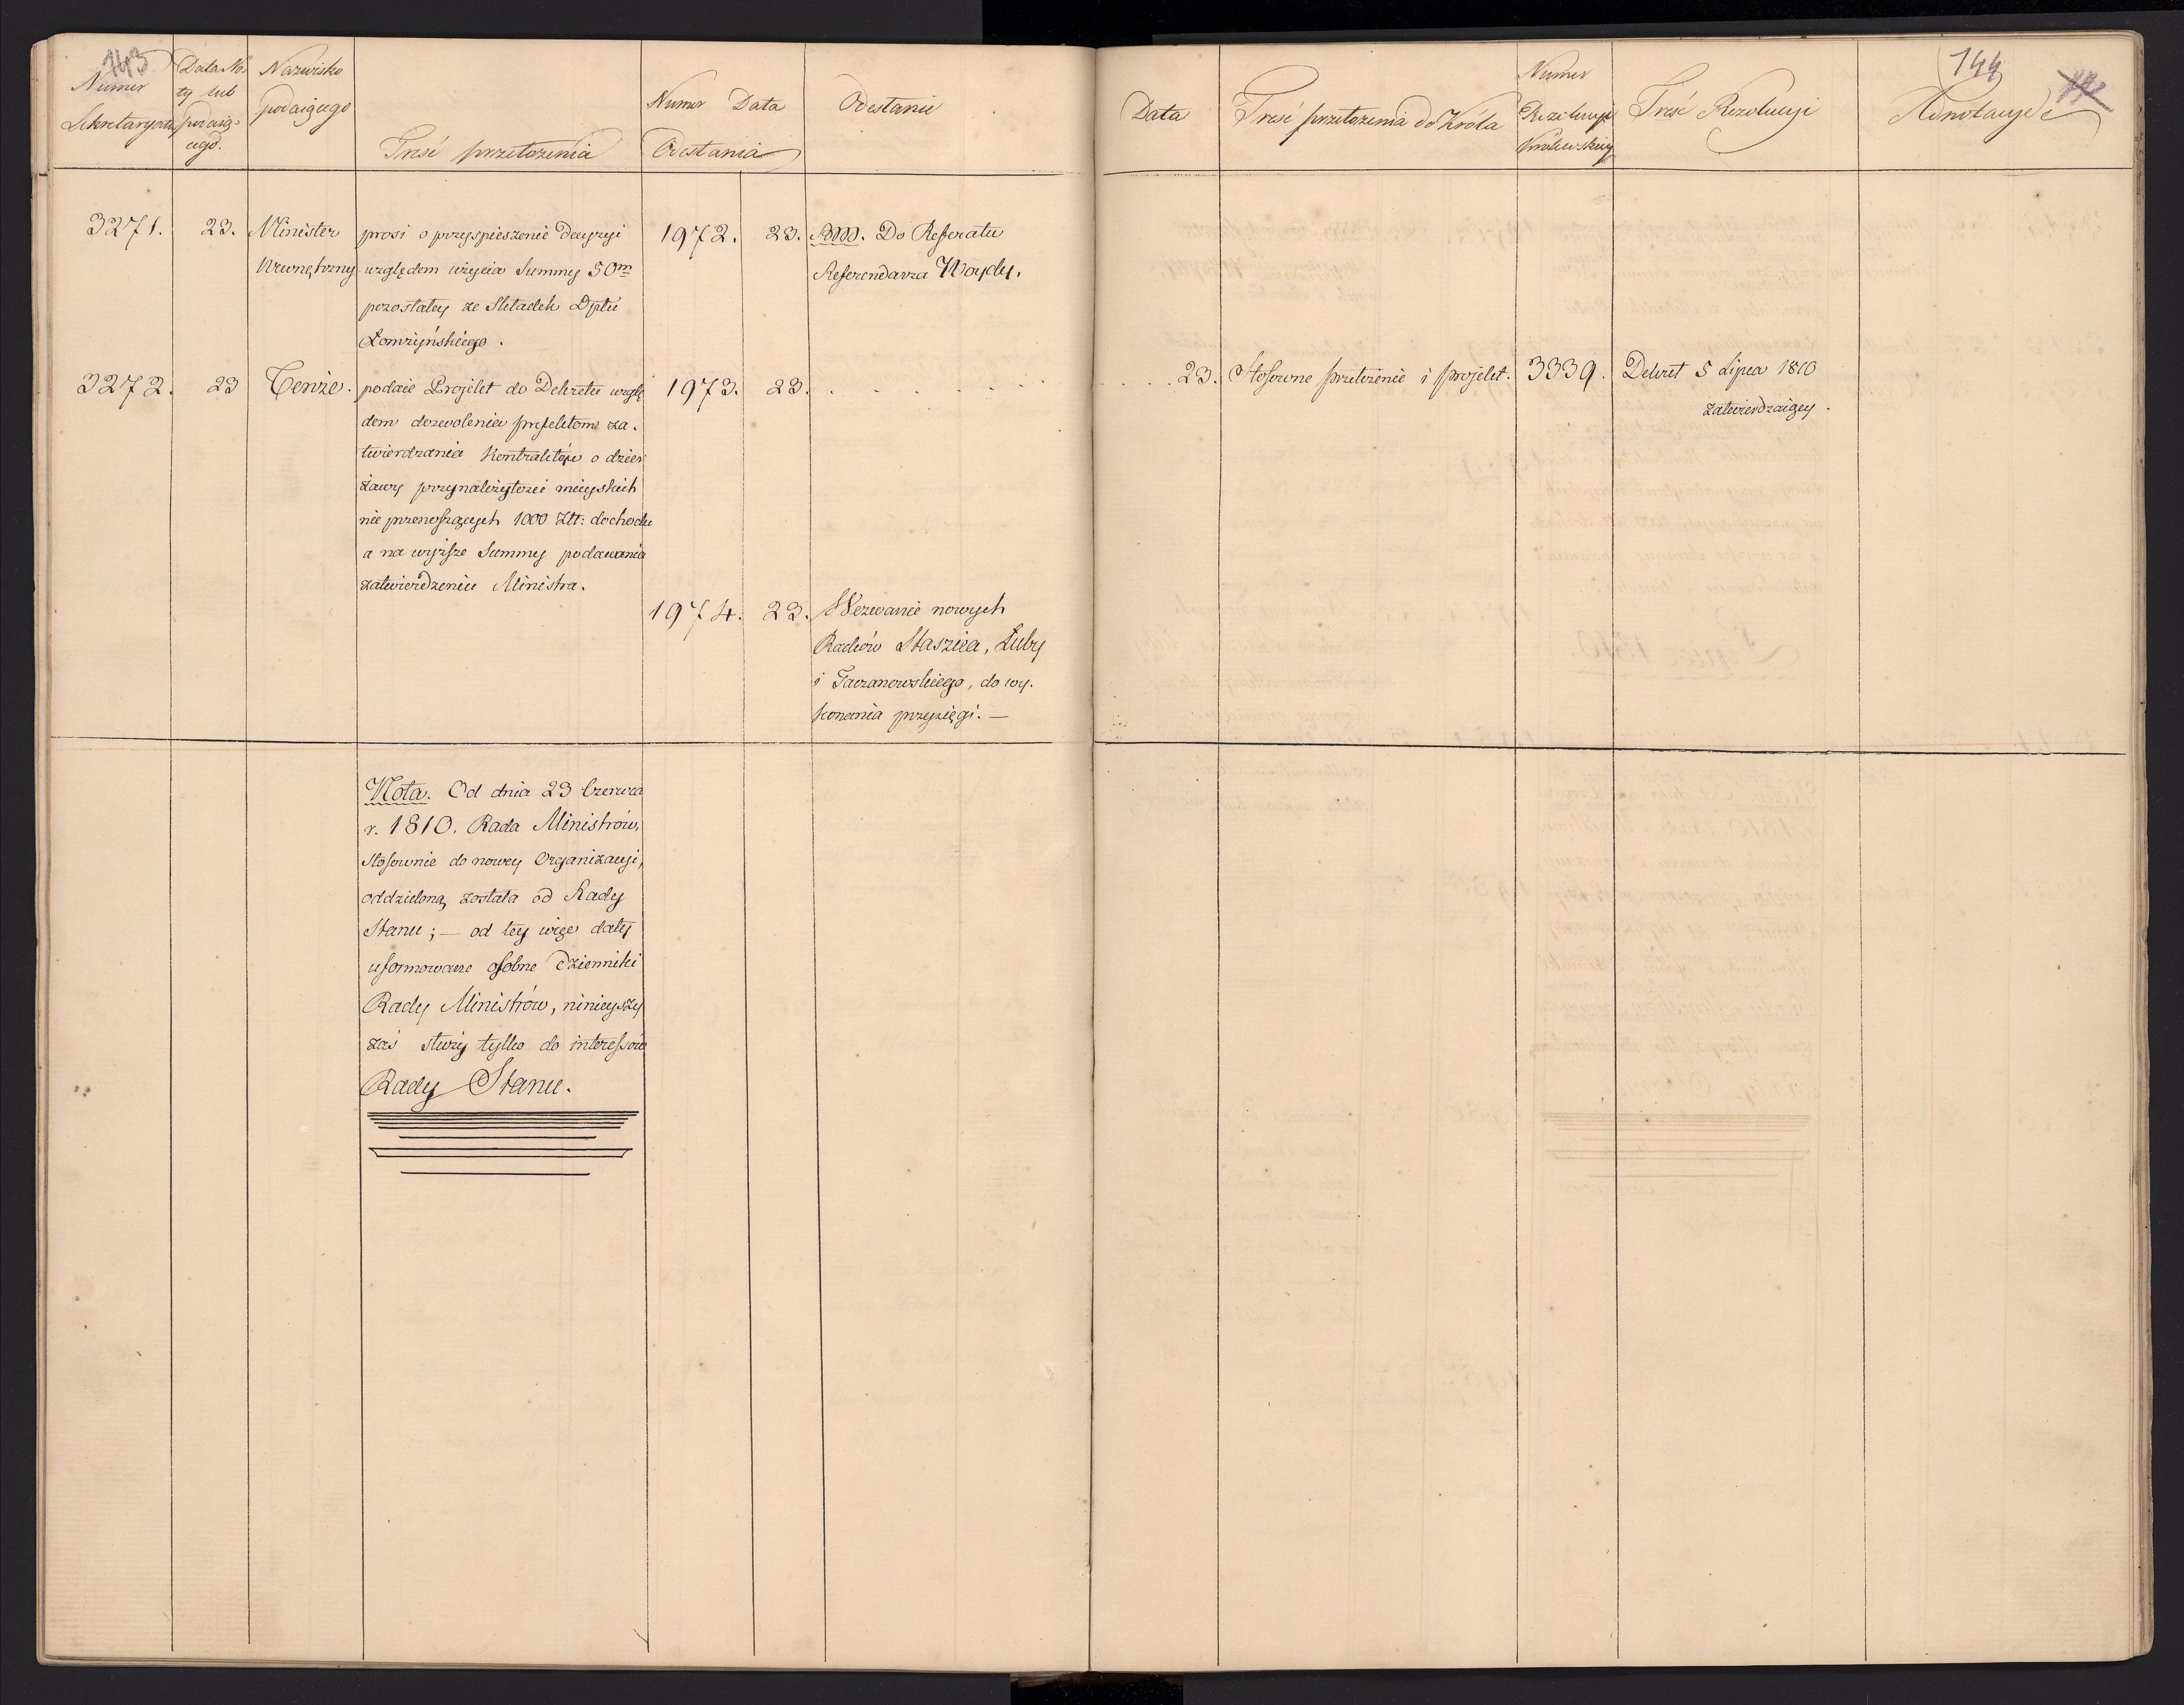 143
Numer
Sekretaryatu
Data No
ty lub
podaią-
cego.
Nazwisko
podaiącego
Treść przełożenia
Numer Data
Odesłania
Odesłanie
3271. 23. Minister
Wewnętrzny
prosi o przyspieszenie Decyzyi
względem użycia Summy 50m
pozostałey ze Składek Dptu
Łomżyńskiego.
1972. 23. Do Referatu
Referendarza Woydy.
3272. 23 Tenże.
podaie Projekt do Dekretu wzglę
dem dozwolenia prefektom za-
twierdzania Kontraktów o dzier
żawy przynależytości mieyskich
nie przenoszących 1000 Złł: dochodu
a na wyższe Summy podawania
zatwierdzeniu Ministra.
1973. 23. . . . . . . .
1974. 23. Wezwanie nowych
Radców Staszica, Łuby
i Taczanowskiego, do wy-
konania przysięgi. —
Nota. Od dnia 23 Czerwca
r. 1810. Rada Ministrów,
stosownie do nowey Organizacyi,
oddzieloną została od Rady
Stanu; — od tey więc daty
uformowane osobne dzienniki
Rady Ministrów, ninieyszy
zaś służy tylko do interessów
Rady Stanu.
144
Data
Treść przełożenia do Króla
Numer
Rezolucyi
Królewskiey
Treść Rezolucyi
Adnotacye
. . . 23. Stosowne przełożenie i projekt. 3339. Dekret 5 Lipca 1810
zatwierdzaiący.